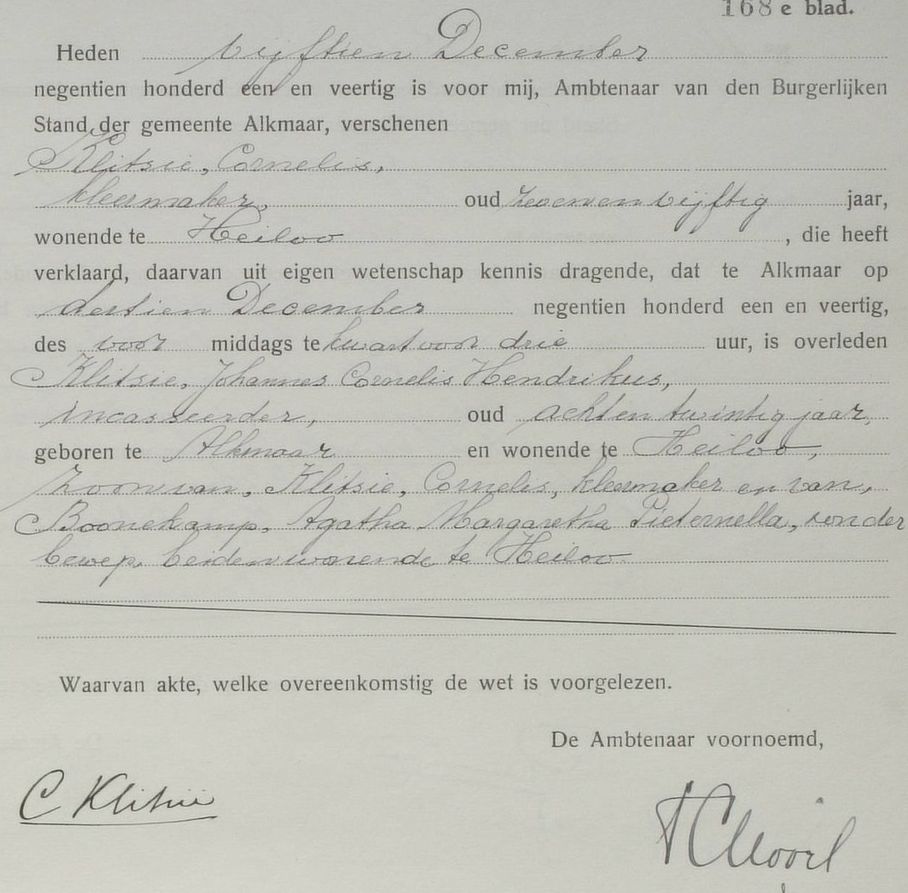 168 e blad.
Heden vijftien December
negentien honderd een en veertig is voor mij, Ambtenaar van den Burgerlijken
Stand der gemeente Alkmaar, verschenen
Klitsie, Cornelis,
kleermaker, oud zevenenvijftig jaar,
wonende te Heiloo, die heeft
verklaard, daarvan uit eigen wetenschap kennis dragende, dat te Alkmaar op
dertien December negentien honderd een en veertig,
des voor middags te kwart voor drie uur, is overleden
Klitsie, Johannes Cornelis Hendrikus,
incasseerder, oud achtentwintig jaar,
geboren te Alkmaar en wonende te Heiloo,
zoon van, Klitsie, Cornelis, kleermaker en van,
Boonekamp, Agatha Margaretha Pieternella, zonder
beroep, beiden wonende te Heiloo
Waarvan akte, welke overeenkomstig de wet is voorgelezen.
De Ambtenaar voornoemd,
C Klitsie